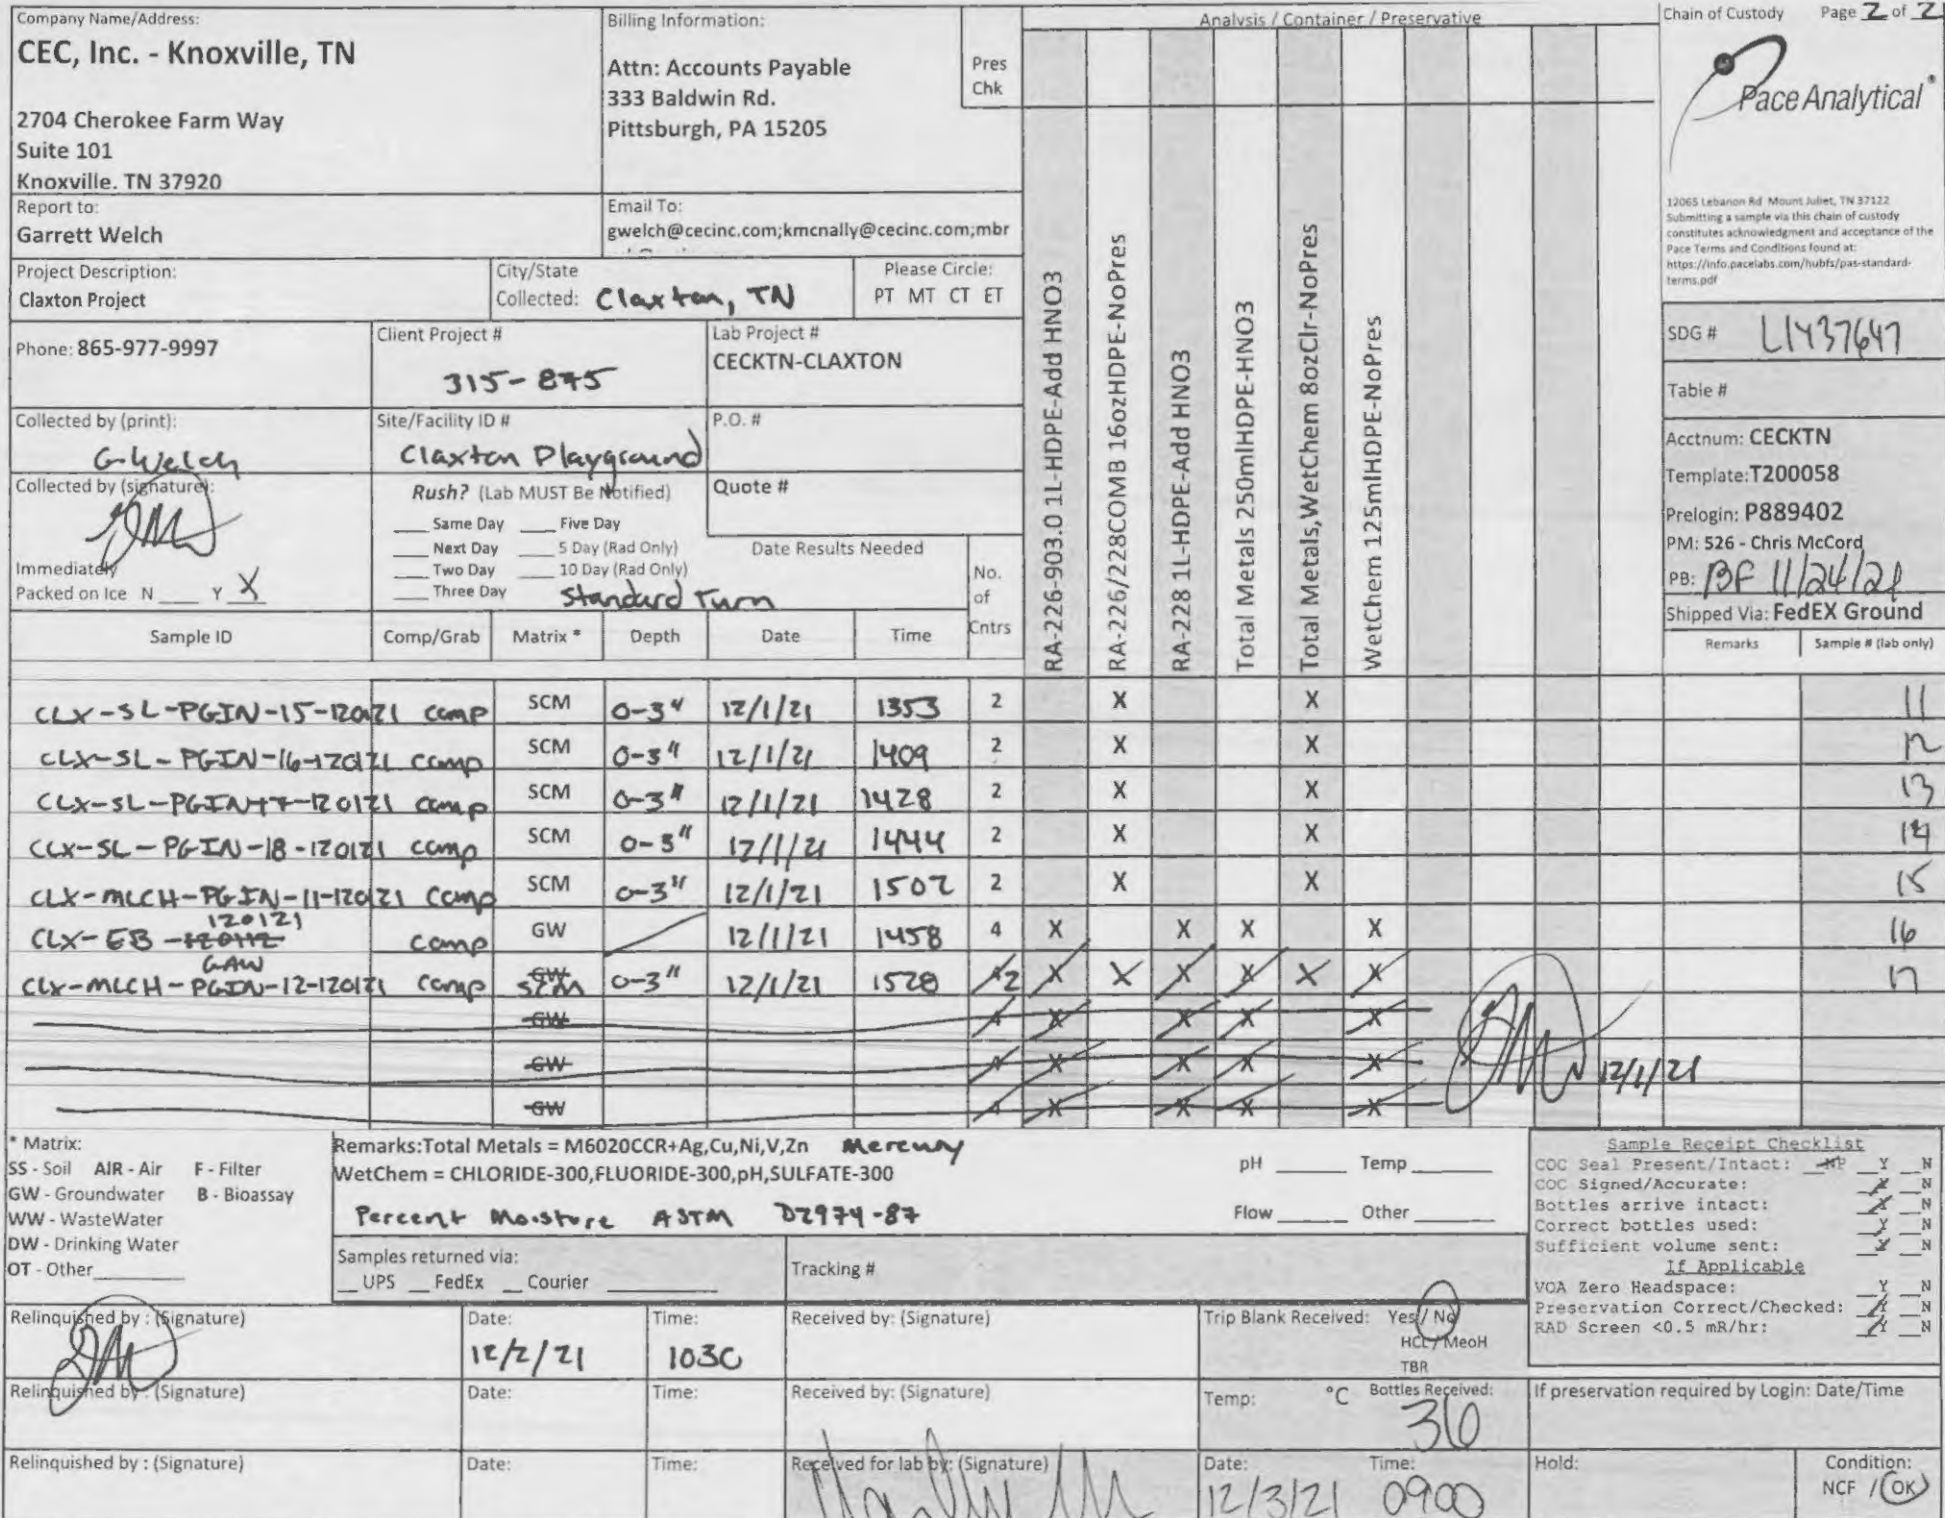 Company Name/Address:
CEC, Inc. - Knoxville, TN
2704 Cherokee Farm Way
Suite 101
Knoxville. TN 37920
Billing Information:
Attn: Accounts Payable
333 Baldwin Rd.
Pittsburgh, PA 15205
Pres
Chk
Analysis / Container / Preservative
Chain of Custody Page 2 of 2
Pace Analytical®
12065 Lebanon Rd Mount Juliet, TN 37122
Submitting a sample via this chain of custody
constitutes acknowledgment and acceptance of the
Pace Terms and Conditions found at:
https://info.pacelabs.com/hubfs/pas-standard-
terms.pdf
Report to:
Garrett Welch
Email To:
gwelch@cecinc.com;kmcnally@cecinc.com;mbr
Project Description:
Claxton Project
City/State
Collected: Claxton, TN
Please Circle:
PT MT CT ET
Phone: 865-977-9997
Client Project #
315-875
Lab Project #
CECKTN-CLAXTON
Collected by (print):
G. Welch
Site/Facility ID #
Claxton Playground
P.O. #
Collected by (signature):
Immediately
Packed on Ice N ___ Y X
Rush? (Lab MUST Be Notified)
___ Same Day ___ Five Day
___ Next Day ___ 5 Day (Rad Only)
___ Two Day ___ 10 Day (Rad Only)
___ Three Day
Standard Turn
Quote #
Date Results Needed
No.
of
Cntrs
RA-226-903.0 1L-HDPE-Add HNO3
RA-226/228COMB 16ozHDPE-NoPres
RA-228 1L-HDPE-Add HNO3
Total Metals 250mlHDPE-HNO3
Total Metals,WetChem 8ozClr-NoPres
WetChem 125mlHDPE-NoPres
SDG # L1437647
Table #
Acctnum: CECKTN
Template:T200058
Prelogin: P889402
PM: 526 - Chris McCord
PB: BF 11/24/21
Shipped Via: FedEX Ground
Sample ID Comp/Grab Matrix * Depth Date Time Remarks Sample # (lab only)
CLX-SL-PGIN-15-120121 comp SCM 0-3" 12/1/21 1353 2 X X 11
CLX-SL-PGIN-16-120121 comp SCM 0-3" 12/1/21 1409 2 X X 12
CLX-SL-PGIN-17-120121 comp SCM 0-3" 12/1/21 1428 2 X X 13
CLX-SL-PGIN-18-120121 comp SCM 0-3" 12/1/21 1444 2 X X 14
CLX-MLCH-PGIN-11-120121 comp SCM 0-3" 12/1/21 1502 2 X X 15
120121
CLX-EB-120112 comp GW 12/1/21 1458 4 X X X X 16
GAW
CLX-MLCH-PGIN-12-120121 comp GW SCM 0-3" 12/1/21 1528 4 2 X X X X X X 17
GW 4 X X X X
GW 4 X X X X
GW 4 X X X X
12/1/21
* Matrix:
SS - Soil AIR - Air F - Filter
GW - Groundwater B - Bioassay
WW - WasteWater
DW - Drinking Water
OT - Other
Remarks:Total Metals = M6020CCR+Ag,Cu,Ni,V,Zn Mercury
WetChem = CHLORIDE-300,FLUORIDE-300,pH,SULFATE-300
Percent Moisture ASTM D2974-87
pH ___ Temp ___
Flow ___ Other ___
Samples returned via:
__ UPS __ FedEx __ Courier
Tracking #
Sample Receipt Checklist
COC Seal Present/Intact: NP _Y _N
COC Signed/Accurate: Y _N
Bottles arrive intact: Y _N
Correct bottles used: Y _N
Sufficient volume sent: Y _N
If Applicable
VOA Zero Headspace: _Y _N
Preservation Correct/Checked: Y _N
RAD Screen <0.5 mR/hr: Y _N
Relinquished by : (Signature)
Date:
12/2/21
Time:
1030
Received by: (Signature)
Trip Blank Received: Yes / No
HCL / MeoH
TBR
Relinquished by : (Signature)
Date:
Time:
Received by: (Signature)
Temp: °C
Bottles Received:
36
If preservation required by Login: Date/Time
Relinquished by : (Signature)
Date:
Time:
Received for lab by: (Signature)
Date:
12/3/21
Time:
0900
Hold:
Condition:
NCF / OK